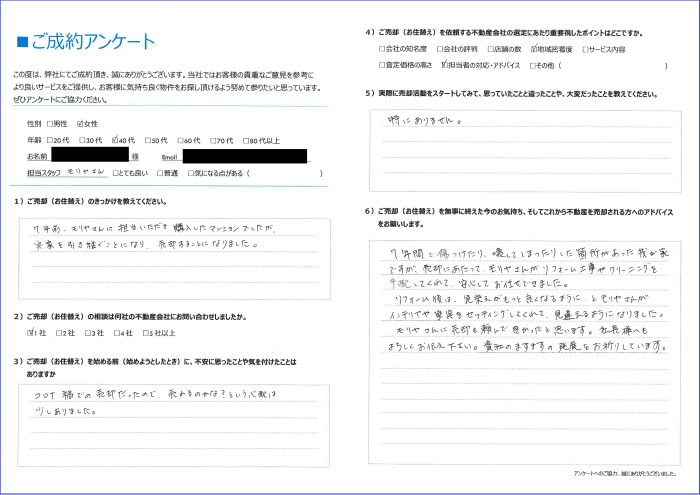 ■ご成約アンケート
この度は、弊社にてご成約頂き、誠にありがとうございます。当社ではお客様の貴重なご意見を参考に
より良いサービスをご提供し、お客様に気持ち良く物件をお探し頂けるよう努めて参りたいと思っています。
ぜひアンケートにご協力ください。
性別 □男性 ☑女性
年齢 □20代 □30代 ☑40代 □50代 □60代 □70代 □80代以上
お名前 様 Email
担当スタッフ モリヤさん □とても良い □普通 □気になる点がある( )
1)ご売却(お住替え)のきっかけを教えてください。
7年前、モリヤさんに担当いただき購入したマンションでしたが、
実家を引き継ぐことになり、売却することになりました。
2)ご売却(お住替え)の相談は何社の不動産会社にお問い合わせしましたか。
☑1社 □2社 □3社 □4社 □5社以上
3)ご売却(お住替え)を始める前(始めようとしたとき)に、不安に思ったことや気を付けたことは
ありますか
コロナ禍での売却だったので、売れるのかな?という心配は
少しありました。
4)ご売却(お住替え)を依頼する不動産会社の選定にあたり重要視したポイントはどこですか。
□会社の知名度 □会社の評判 □店舗の数 ☑地域密着度 □サービス内容
□査定価格の高さ ☑担当者の対応・アドバイス □その他( )
5)実際に売却活動をスタートしてみて、思っていたことと違ったことや、大変だったことを教えてください。
特にありません。
6)ご売却(お住替え)を無事に終えた今のお気持ち、そしてこれから不動産を売却される方へのアドバイス
をお願いします。
7年間で傷つけたり、壊してしまったりした箇所があった我が家
ですが、売却にあたって、モリヤさんがリフォーム工事やクリーニングを
手配してくれて、安心してお任せできました。
リフォーム後は、見栄えがもっと良くなるように、とモリヤさんが
インテリアや家具をセッティングしてくれて、見違えるようになりました。
モリヤさんに売却も頼んで良かったと思います。社長様へも
よろしくお伝え下さい。貴社のますますの発展をお祈りしています。
アンケートへのご協力、誠にありがとうございました。